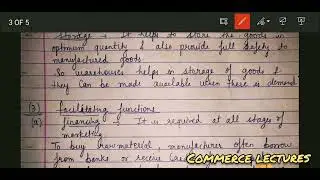 3 OF 5
- Storage → It helps to store the goods in
optimum quantity & also provide full safety to
manufactured goods
- So warehouses helps in storage of goods &
they can be made available when there is demand
(3) facilitating functions
(a) financing → It is required at all stages of
marketing
- To buy raw material, manufacturer often borrow
from banks or receive
COMMERCE LECTURES